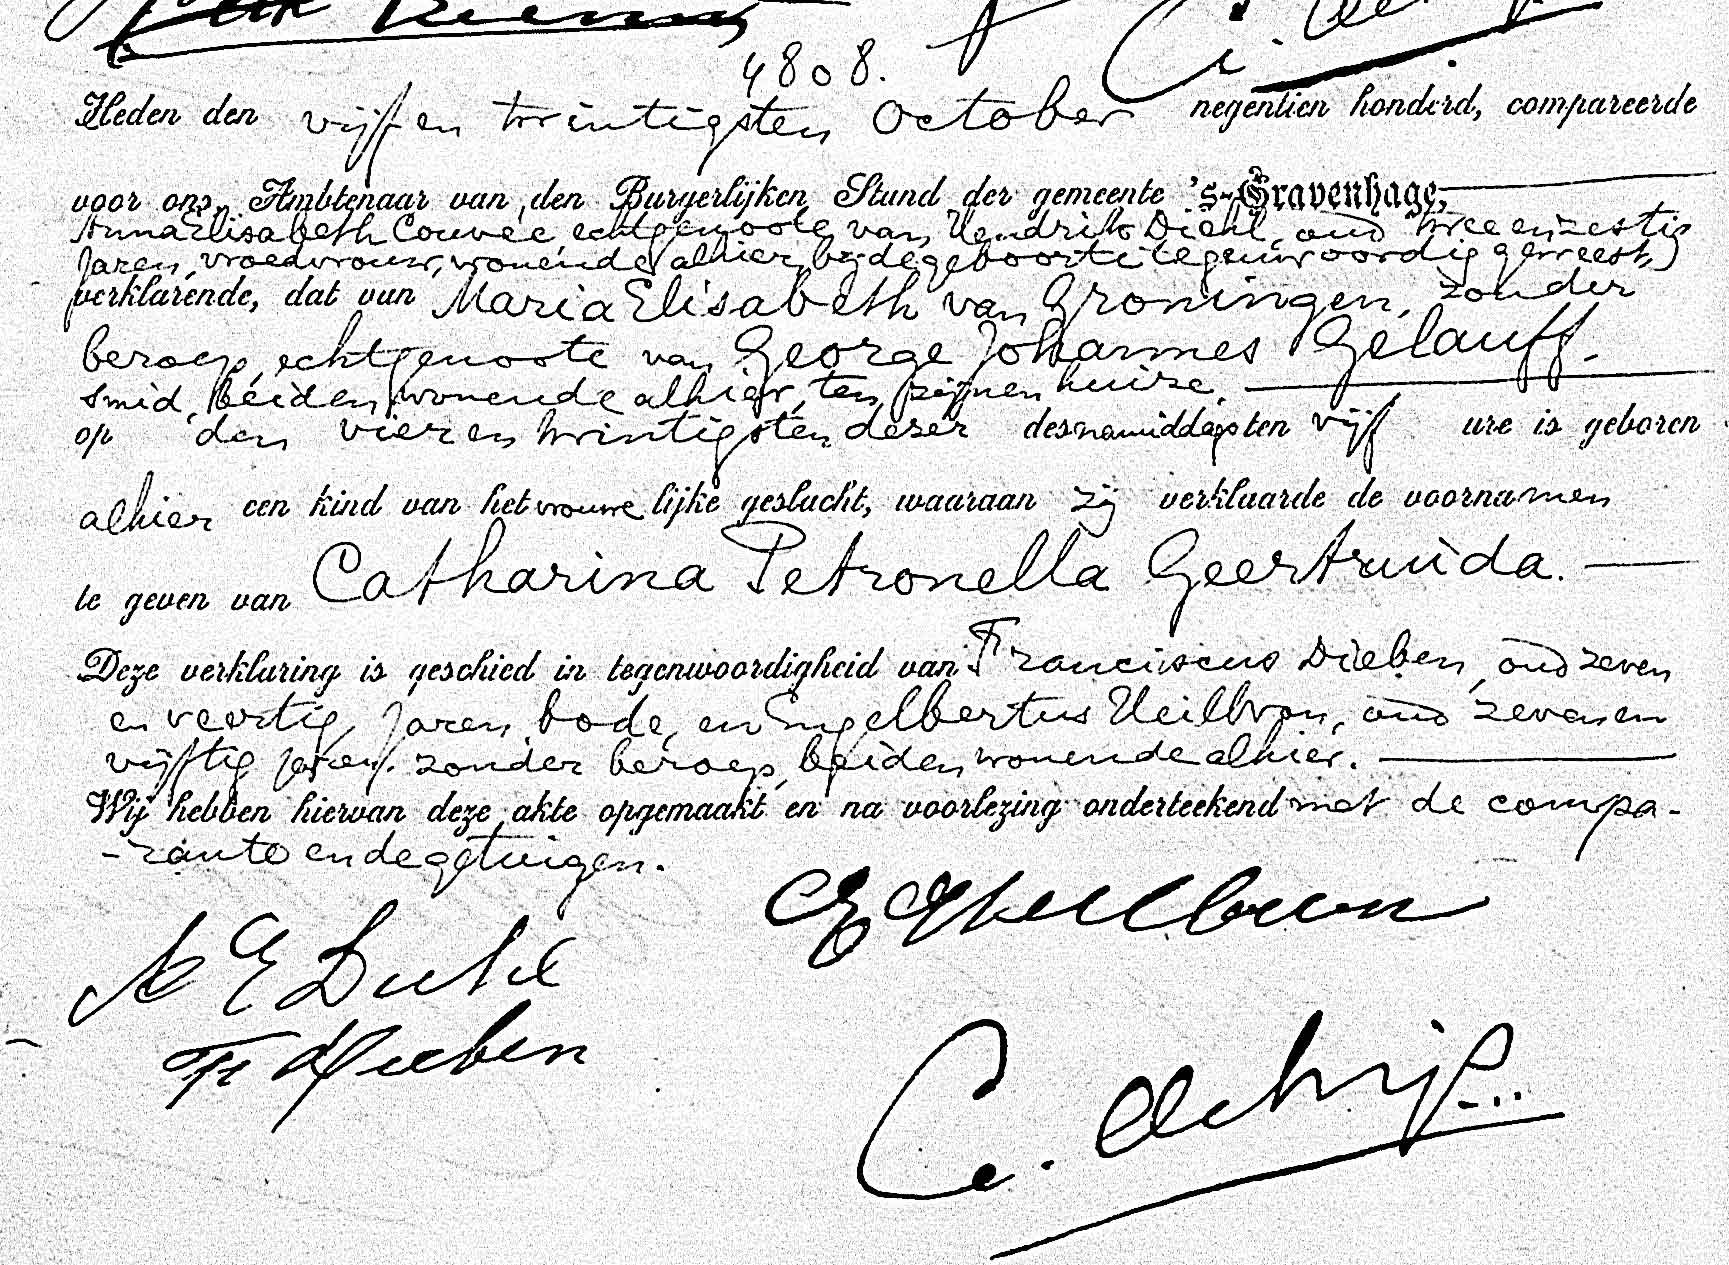 4808.
Heden den vijf en twintigsten October negentien honderd, compareerde
voor ons, Ambtenaar van den Burgerlijken Stand der gemeente 's-Gravenhage,
Anna Elisabeth Couvée, echtgenoote van Hendrik Diehl, oud twee en zestig
jaren, vroedvrouw, wonende alhier, bij de geboorte tegenwoordig geweest,
verklarende, dat van Maria Elisabeth van Groningen, zonder
beroep, echtgenoote van George Johannes Gelauff.
smid, beiden wonende alhier, ten zijnen huize,
op den vier en twintigsten dezer des namiddags ten vijf ure is geboren
alhier een kind van het vrouwelijke geslacht, waaraan zij verklaarde de voornamen
te geven van Catharina Petronella Geertruida.
Deze verklaring is geschied in tegenwoordigheid van Franciscus Dieben, oud zeven
en veertig jaren, bode, en Engelbertus Heilbron, oud zeven en
vijftig jaren, zonder beroep, beiden wonende alhier.
Wij hebben hiervan deze akte opgemaakt en na voorlezing onderteekend met de compa-
-rante en de getuigen.
E Heilbron
A E Diehl
Fr Dieben